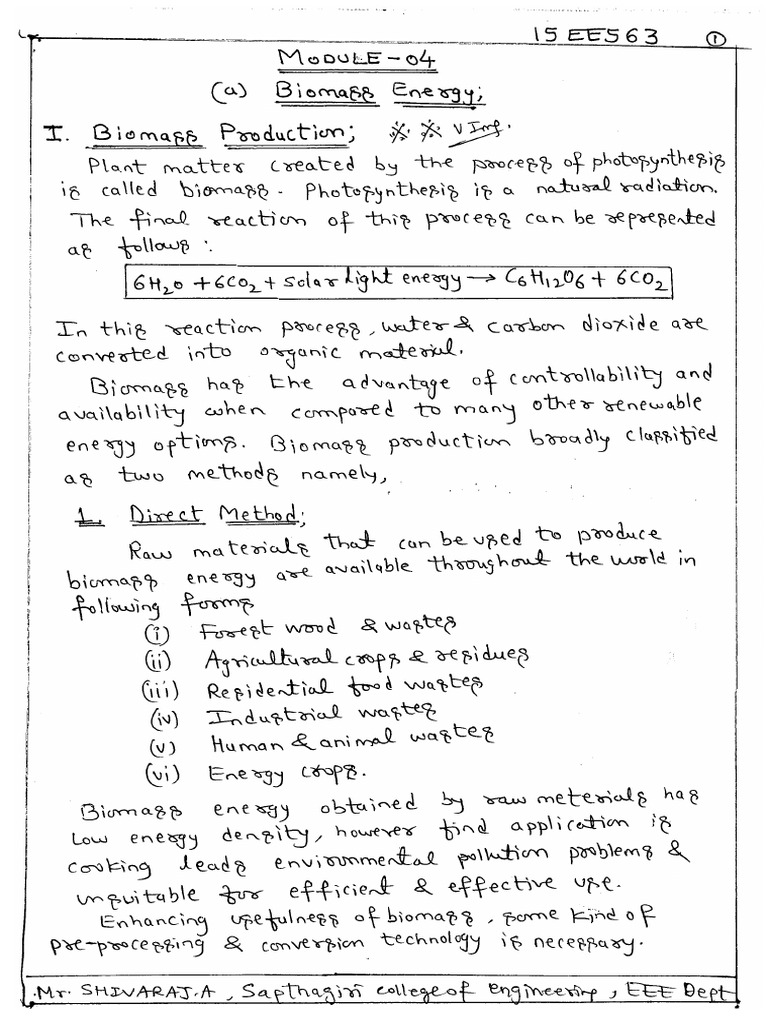 15EE563 1
MODULE-04
(a) Biomass Energy;
I. Biomass Production; ※ ※ V Imp.
Plant matter created by the process of photosynthesis
is called biomass. Photosynthesis is a natural radiation.
The final reaction of this process can be represented
as follows:
6H2O + 6CO2 + solar light energy → C6H12O6 + 6CO2
In this reaction process, water & carbon dioxide are
converted into organic material.
Biomass has the advantage of controllability and
availability when compared to many other renewable
energy options. Biomass production broadly classified
as two methods namely,
1. Direct Method;
Raw materials that can be used to produce
biomass energy are available throughout the world in
following forms
(i) Forest wood & wastes
(ii) Agricultural crops & residues
(iii) Residential food wastes
(iv) Industrial wastes
(v) Human & animal wastes
(vi) Energy crops.
Biomass energy obtained by raw meterials has
low energy density, however find application is
cooking leads environmental pollution problems &
unsuitable for efficient & effective use.
Enhancing usefulness of biomass, some kind of
pre-processing & conversion technology is necessary.
Mr. SHIVARAJ.A, Sapthagiri college of Engineering, EEE Dept